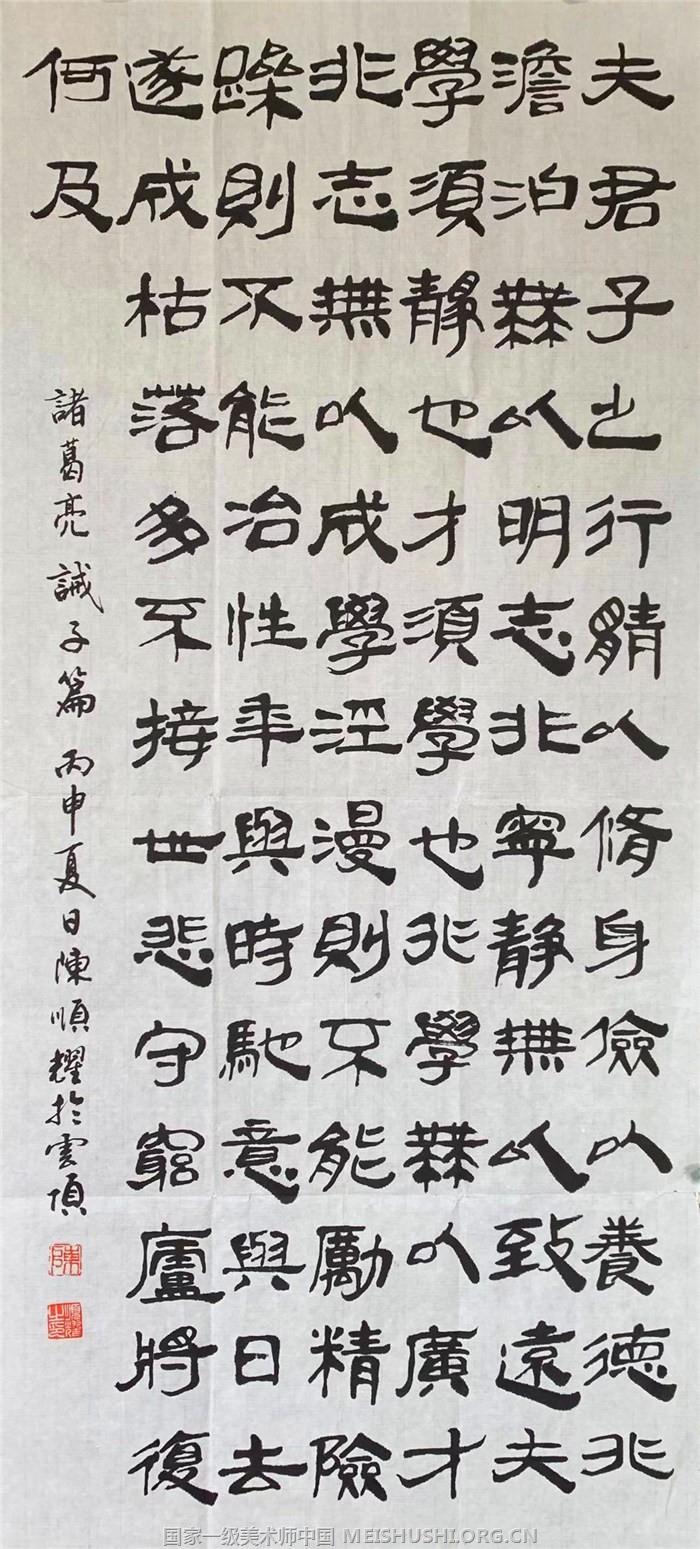 夫君子之行靜以脩身儉以養德非
澹泊無以明志非寧静無以致遠夫
學須靜也才須學也非學無以廣才
非志無以成學淫漫則不能勵精險
躁則不能治性年與時馳意與日去
遂成枯落多不接世悲守窮廬將復
何及
諸葛亮 誡子篇 丙申夏日陳順耀於雲頂
陳
順耀之印
国家一级美术师中国 MEISHUSHI.ORG.CN